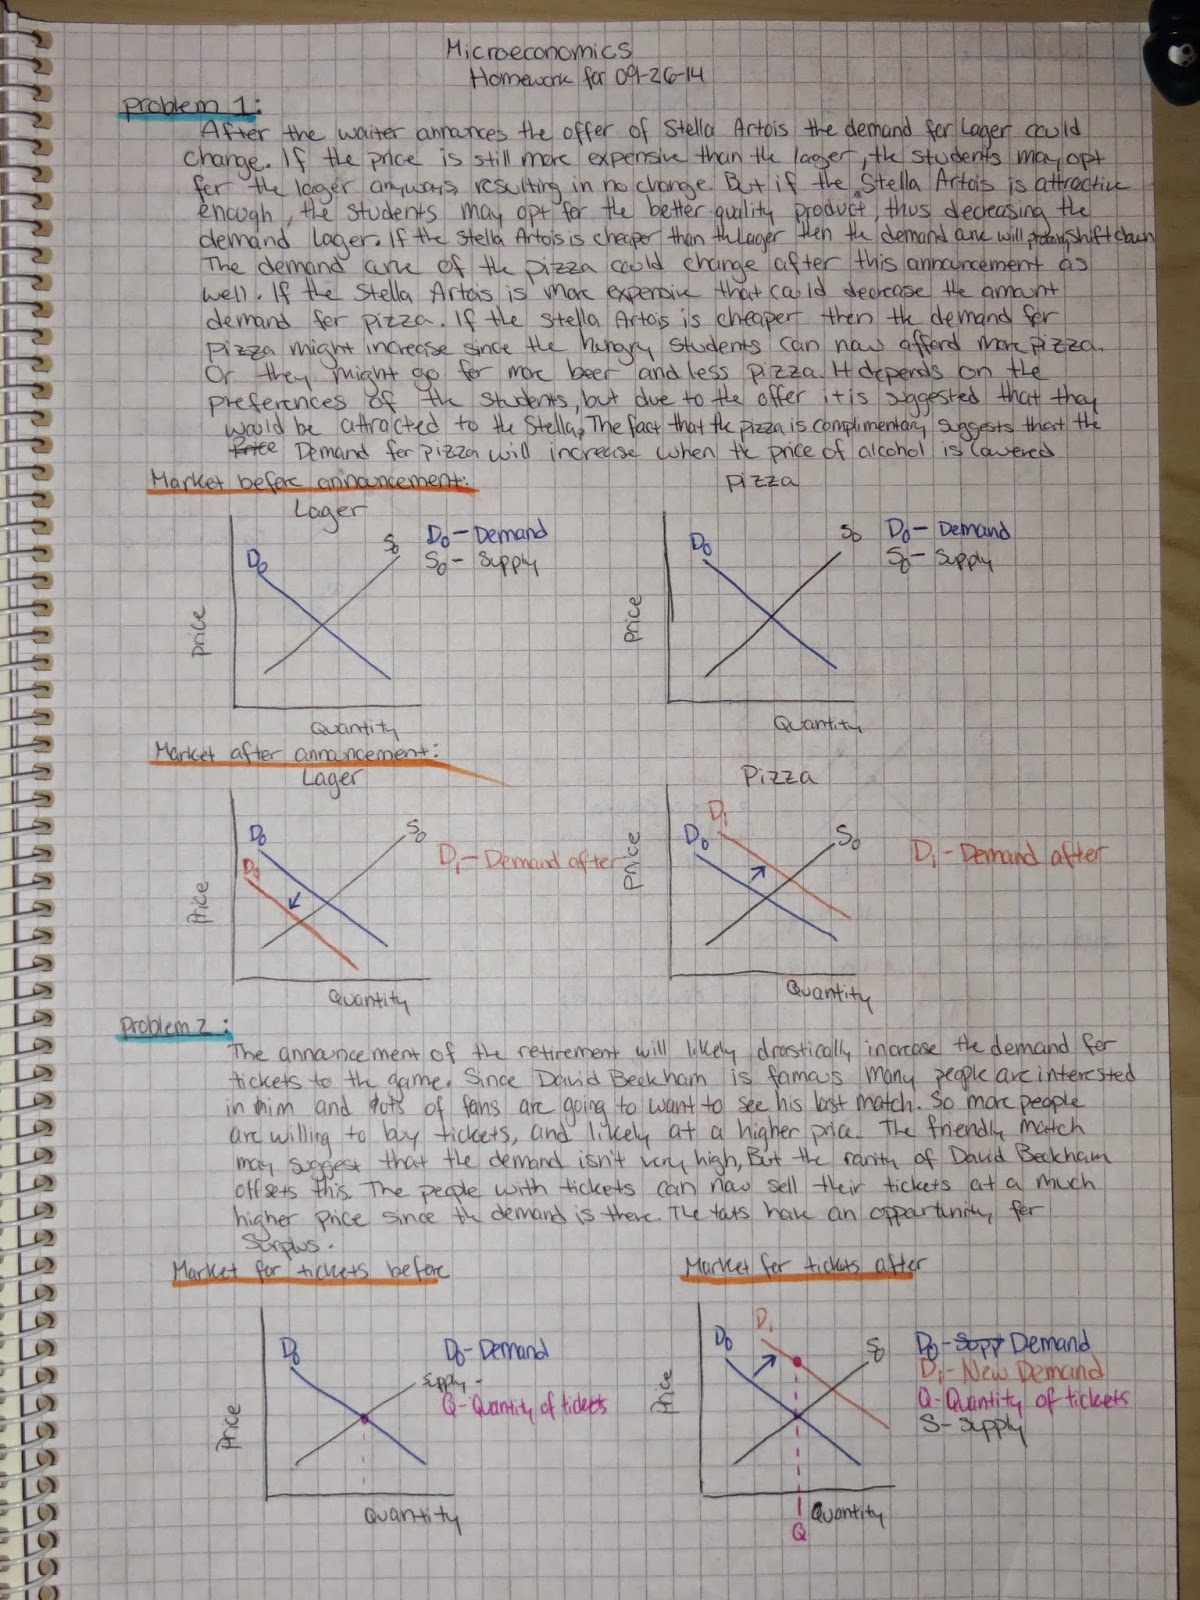 Microeconomics
Homework for 09-26-14
problem 1:
After the waiter annances the offer of Stella Artois the demand for Lager could
change. If the price is still more expensive than the lager, the students may opt
for the lager anyways, resulting in no change. But if the Stella Artois is attractive
enough, the students may opt for the better quality product, thus decreasing the
demand lager. If the Stella Artois is cheaper than the Lager then the demand curve will shift down
The demand curve of the pizza could change after this announcement as
well. If the Stella Artois is more expensive that could decrease the amount
demand for pizza. If the Stella Artois is cheapert then the demand for
pizza might increase since the hungry students can now afford more pizza.
Or they might go for more beer and less pizza. It depends on the
preferences of the students, but due to the offer it is suggested that they
would be attracted to the Stella. The fact that the pizza is complimentary suggests that the
Price Demand for pizza will increase when the price of alcohol is lowered
Market before announcement:
Lager
Pizza
D₀ - Demand
S₀ - Supply
D₀
S₀
price
Quantity
D₀ - Demand
S₀ - Supply
D₀
S₀
price
Quantity
Market after announcement:
Lager
Pizza
D₀
D₁
S₀
D₁ - Demand after
Price
Quantity
D₁
D₀
S₀
D₁ - Demand after
price
Quantity
problem 2:
The announcement of the retirement will likely drastically increase the demand for
tickets to the game. Since David Beckham is famous many people are interested
in him and lots of fans are going to want to see his last match. So more people
are willing to buy tickets, and likely at a higher price. The friendly match
may suggest that the demand isn't very high, But the rarity of David Beckham
offsets this. The people with tickets can now sell their tickets at a much
higher price since the demand is there. The touts have an oppurtunity for
Surplus.
Market for tickets before
Market for tickets after
D₀
supply
D₀ - Demand
Q - Quantity of tickets
Price
Quantity
D₀
D₁
S₀
D₀ - Supp Demand
D₁ - New Demand
Q - Quantity of tickets
S - Supply
Price
Quantity
Q